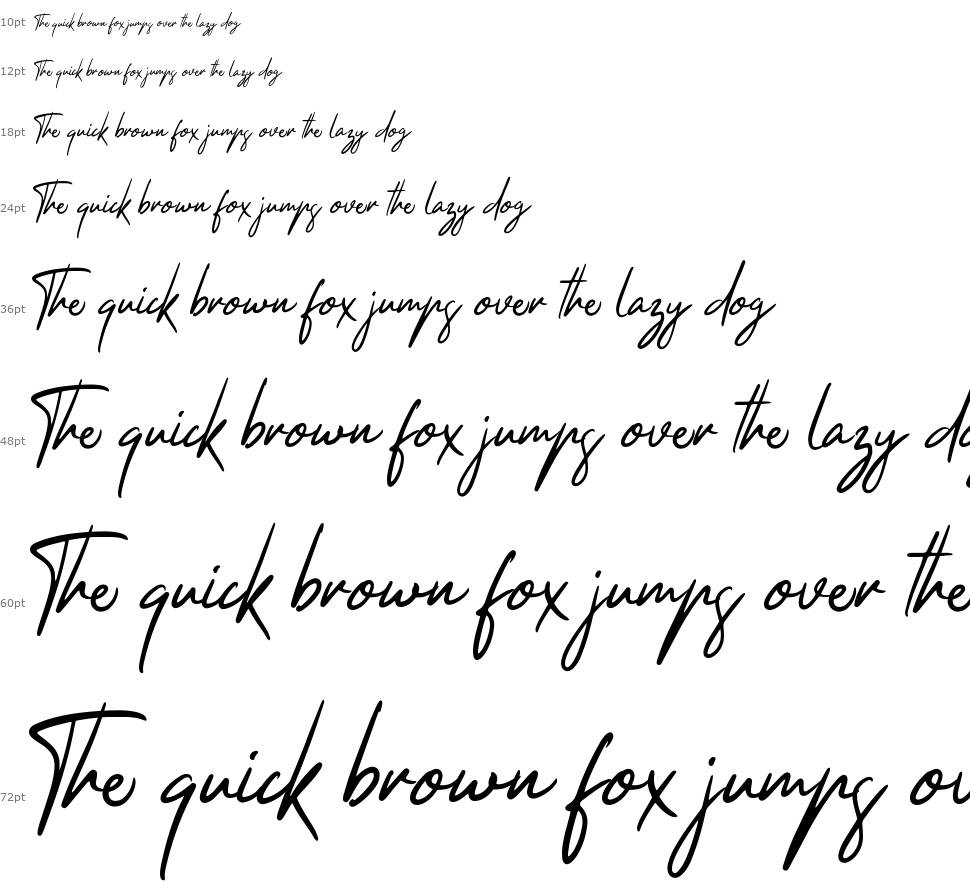 10pt The quick brown fox jumps over the lazy dog
12pt The quick brown fox jumps over the lazy dog
18pt The quick brown fox jumps over the lazy dog
24pt The quick brown fox jumps over the lazy dog
36pt The quick brown fox jumps over the lazy dog
48pt The quick brown fox jumps over the lazy do
60pt The quick brown fox jumps over the
72pt The quick brown fox jumps ov